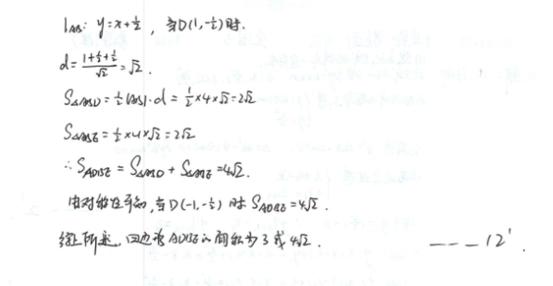 l_AB: y=x+1/2, 当D(1,-1/2)时.
d=(1+1/2+1/2)/√2=√2.
S△ABD=1/2|AB|·d=1/2×4×√2=2√2
S△ABE=1/2×4×√2=2√2
∴S_ADBE=S△ABD+S△ABE=4√2.
由对称性可知,当D(-1,-1/2)时 S_ADBE=4√2.
综上所述,四边形ADBE的面积为3或4√2.
---12'